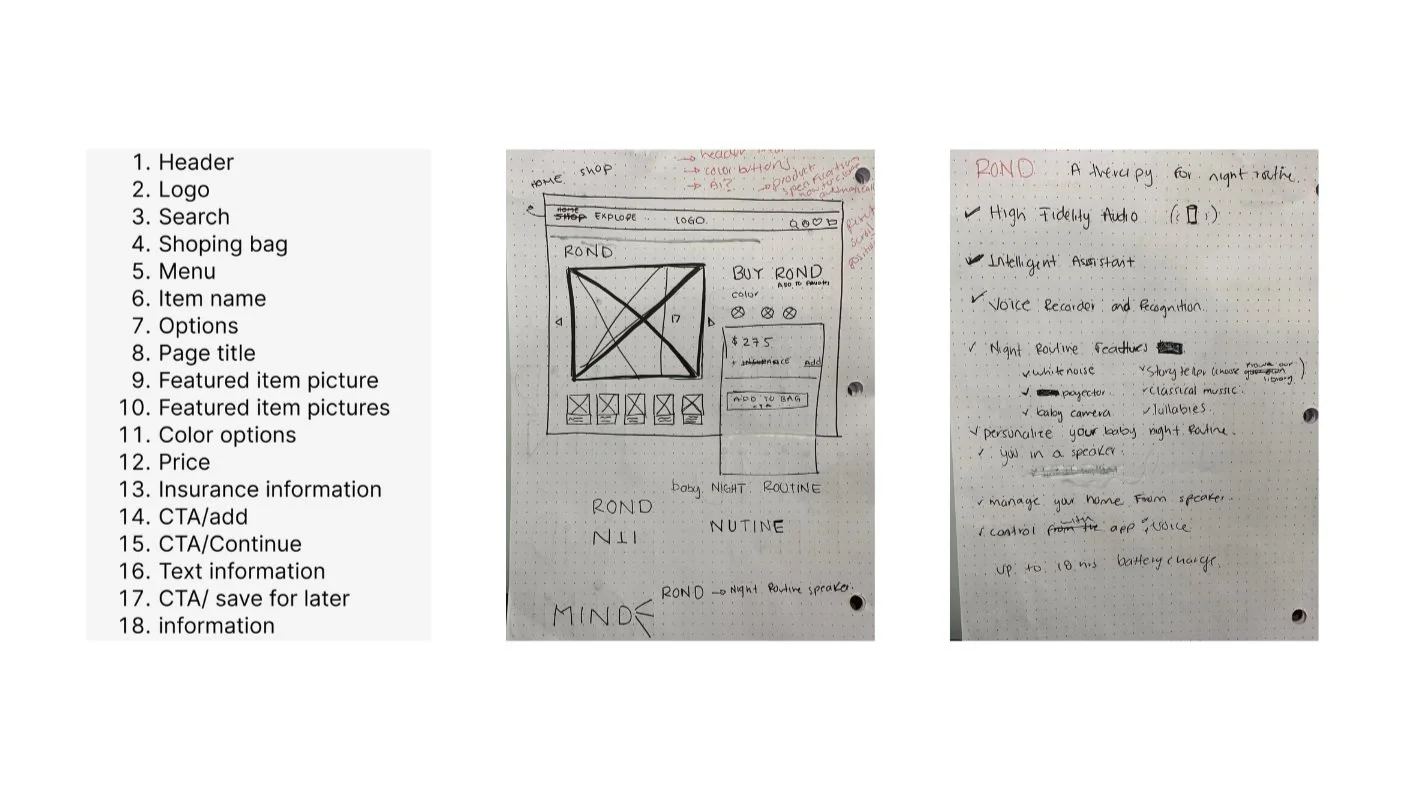 1. Header
2. Logo
3. Search
4. Shoping bag
5. Menu
6. Item name
7. Options
8. Page title
9. Featured item picture
10. Featured item pictures
11. Color options
12. Price
13. Insurance information
14. CTA/add
15. CTA/Continue
16. Text information
17. CTA/ save for later
18. information
HOME SHOP
→ header
→ color buttons
→ AI? → product
HOME
SHOP EXPLORE LOGO
ROND
BUY ROND
ADD TO
color
17
$ 275
+ INSURANCE Add
ADD TO BAG
CTA
baby NIGHT ROUTINE
ROND
NUTINE
ROND → Night Routine speaker.
MIND
ROND A therapy for night routine.
✓ High Fidelity Audio
✓ Intelligent Assistant
✓ Voice Recorder and Recognition.
✓ Night Routine Features
✓ white noise ✓ Story teller (choose library)
✓ projector. ✓ Classical music.
✓ baby camera ✓ lullabies
✓ personalize your baby night Routine.
✓ you in a speaker.
✓ manage your home from speaker.
✓ control with app & voice
up to 18 hrs battery charge.